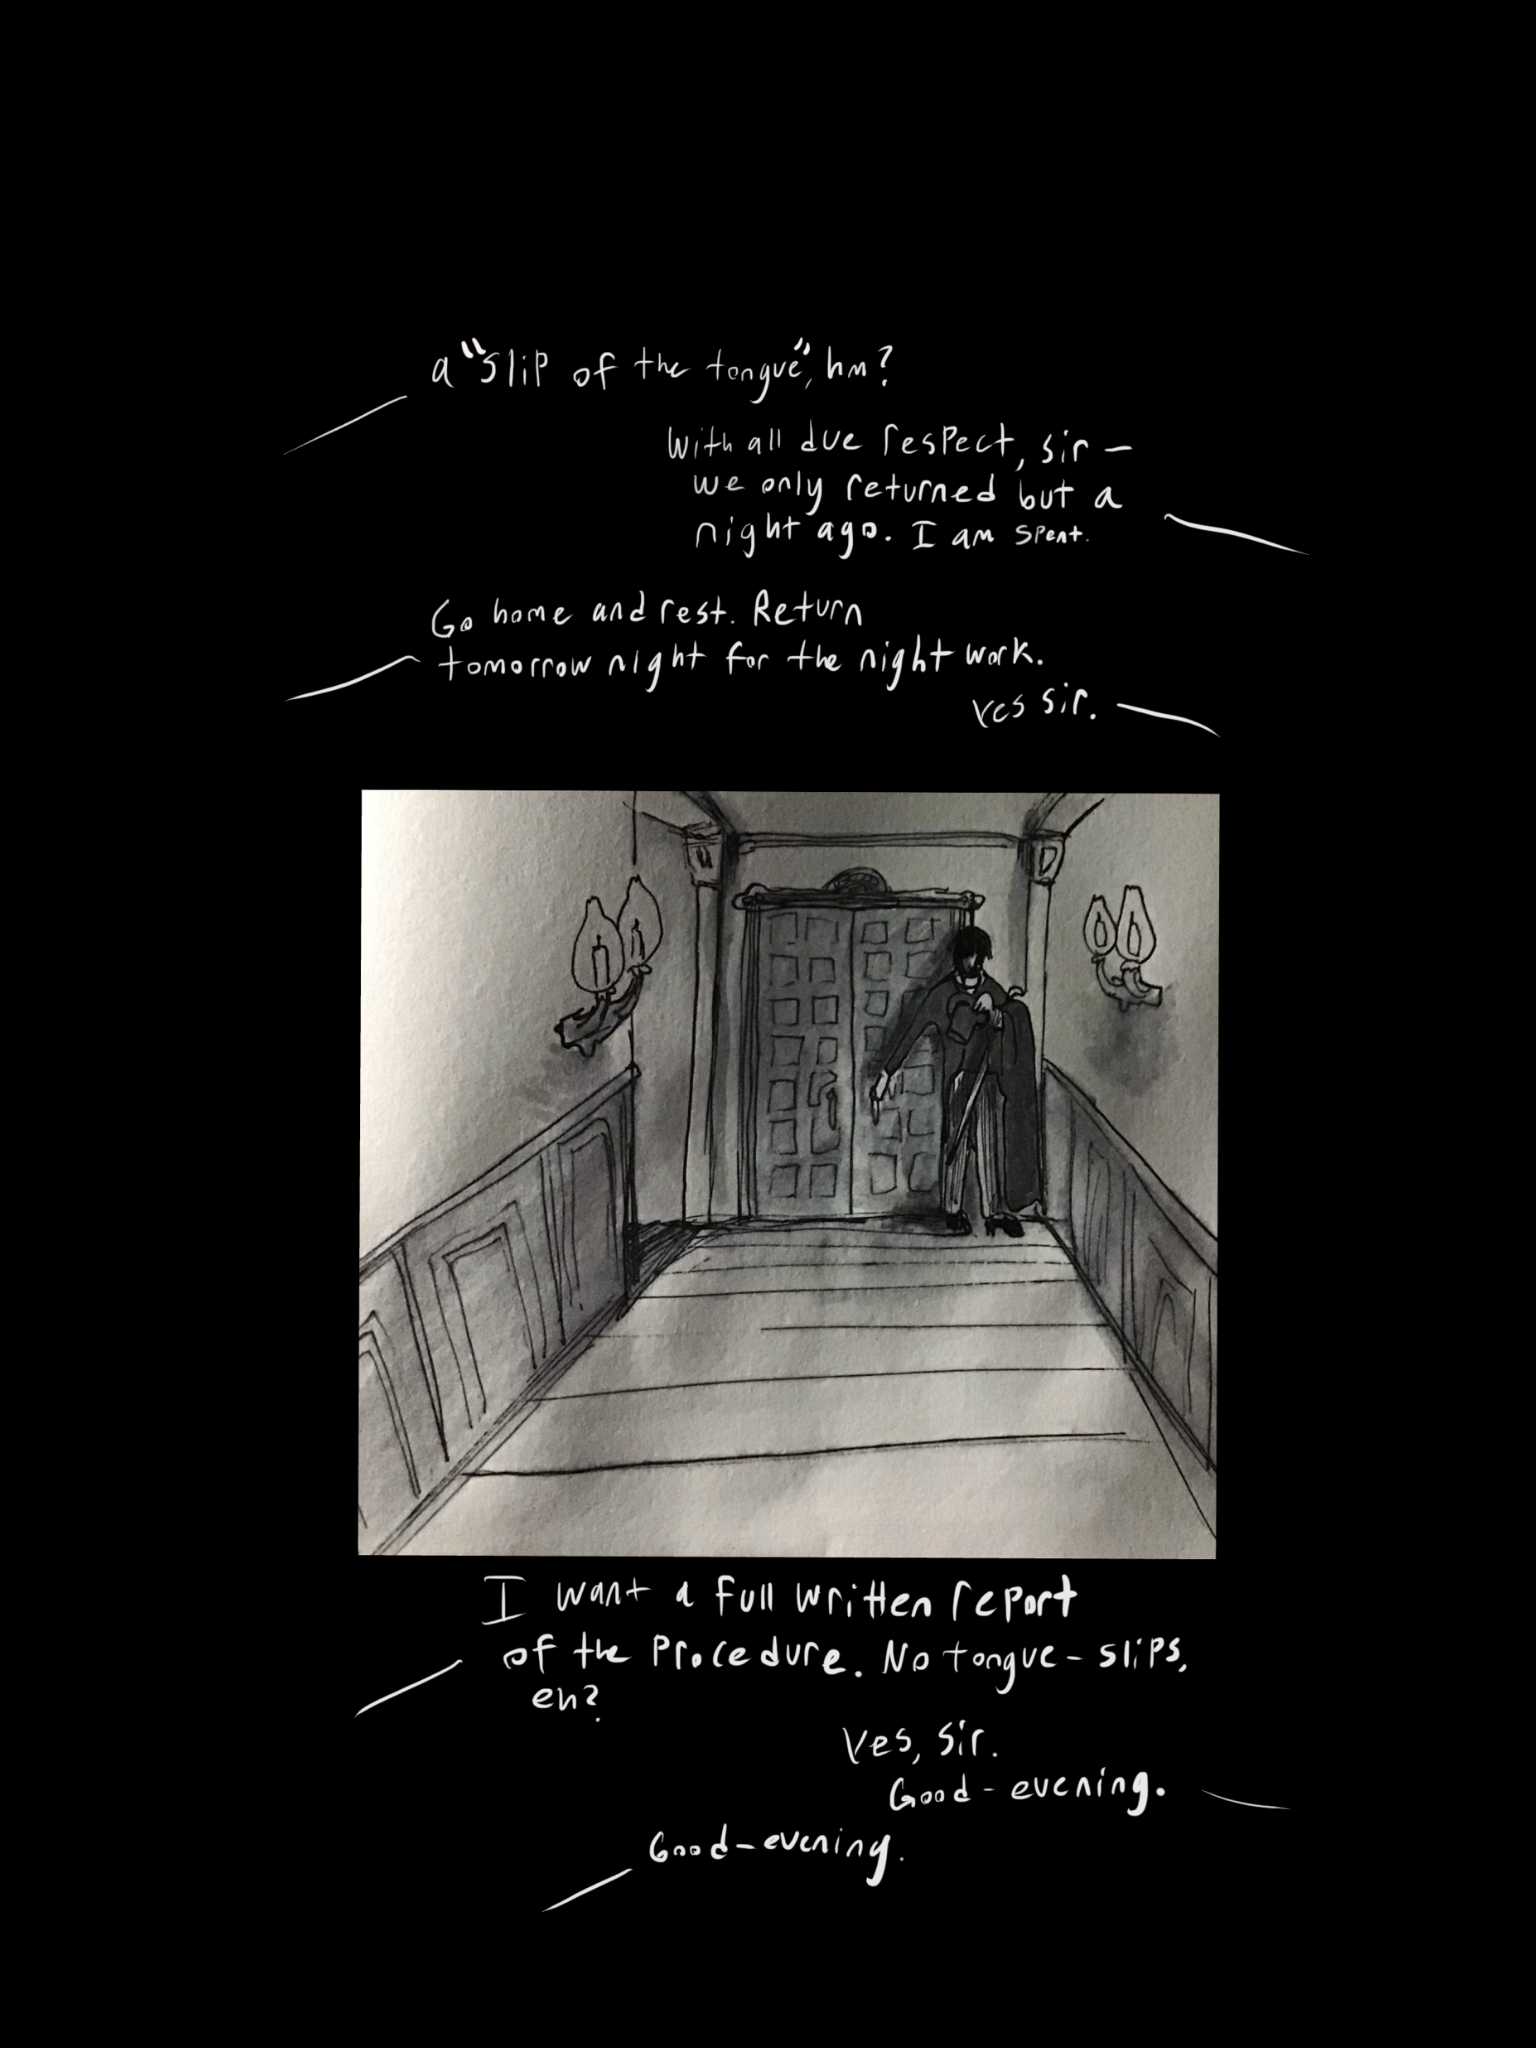 a "slip of the tongue", hm?
With all due respect, sir —
we only returned but a
night ago. I am spent.
Go home and rest. Return
tomorrow night for the night work.
Yes sir.
I want a full written report
of the procedure. No tongue-slips,
eh?
Yes, sir.
Good-evening.
Good-evening.